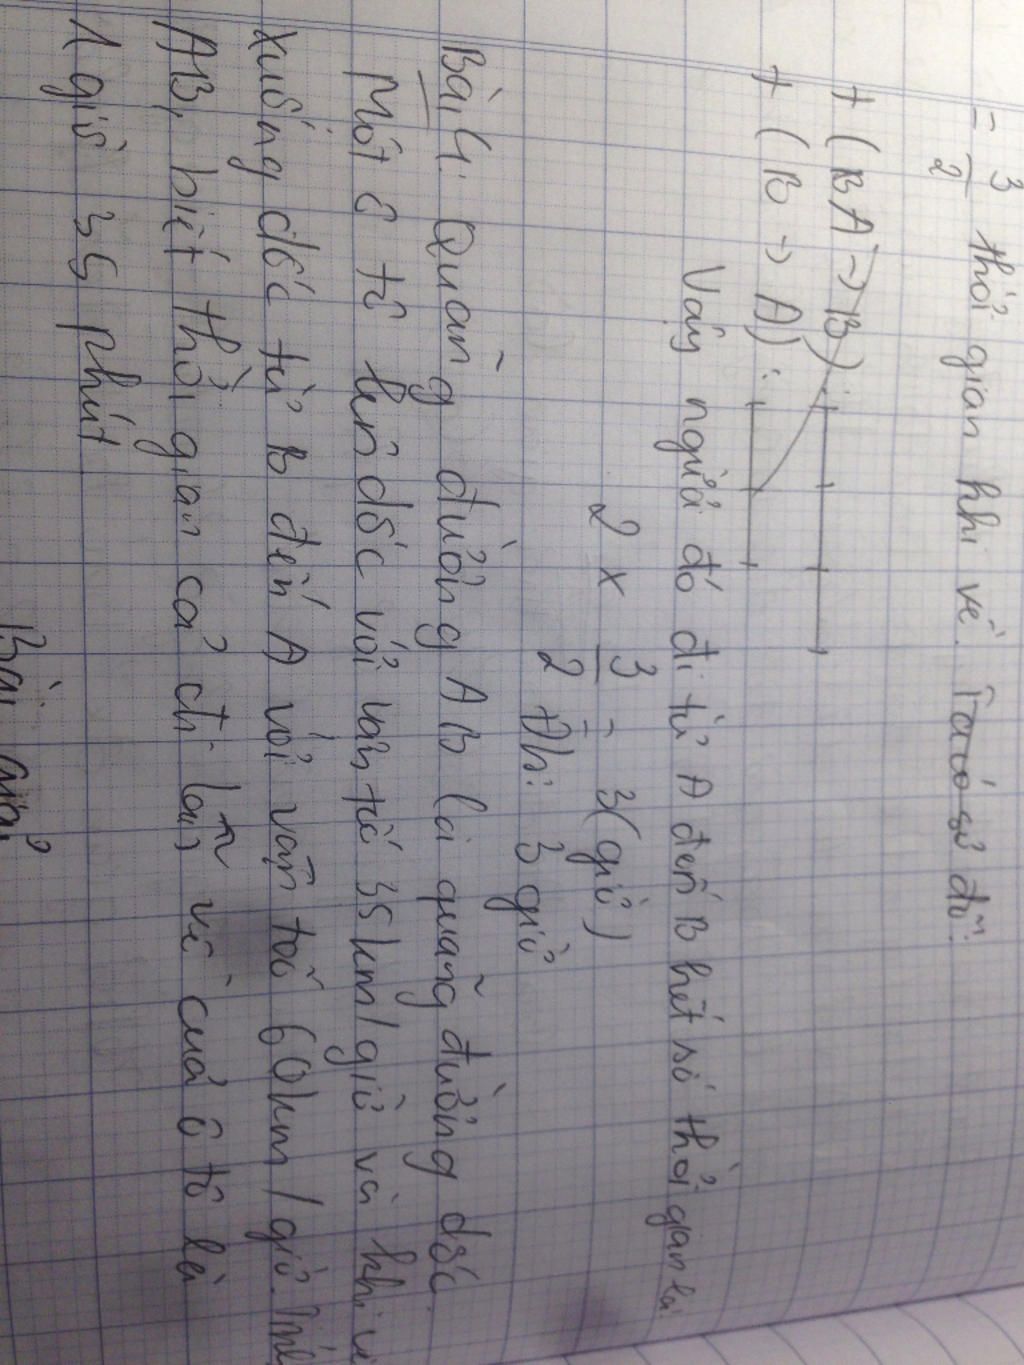 = 3/2 thời gian khi về. Ta có sơ đồ:
+ (BA → B):
+ (B → A):
Vậy người đó đi từ A đến B hết số thời gian là:
2 x 3/2 = 3 (giờ)
Đ/s: 3 giờ
Bài 4: Quãng đường AB là quãng đường dốc.
Một ô tô lên dốc với vận tốc 35km/giờ và khi
xuống dốc từ B đến A với vận tốc 60km/giờ.
AB, biết thời gian cả đi lẫn về của ô tô là
1 giờ 35 phút
Bài giải